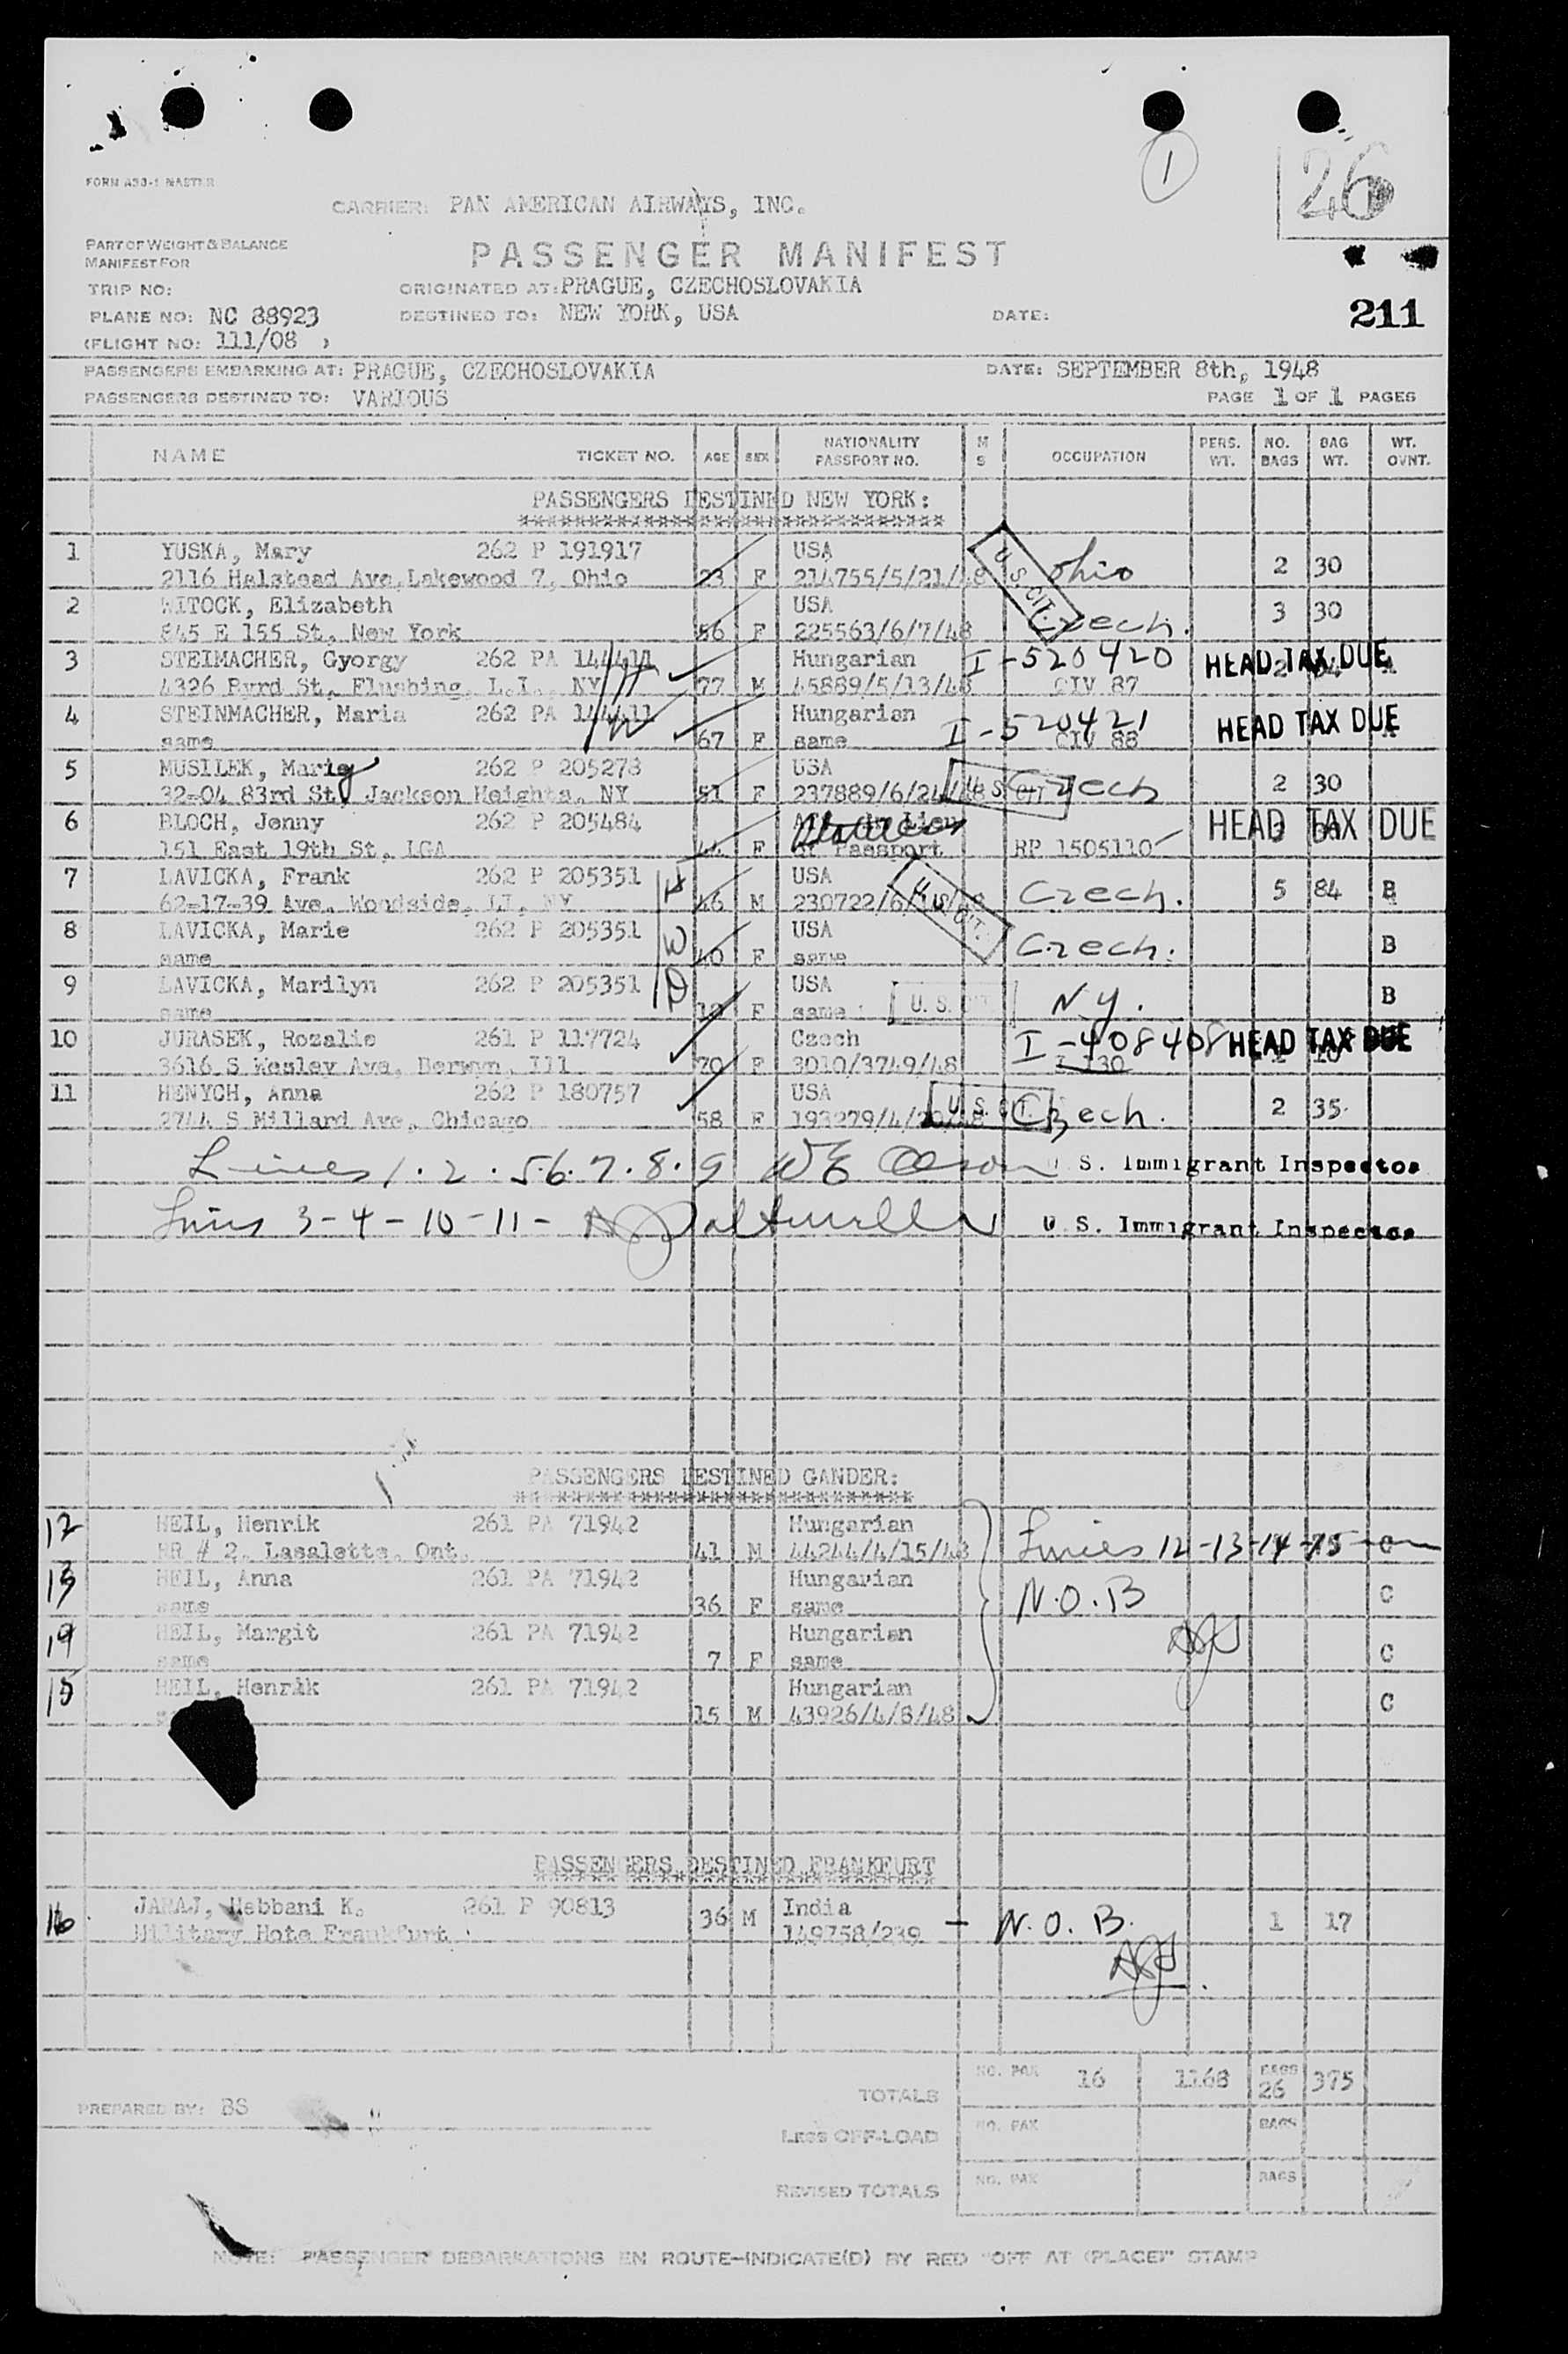 1
26
FORM A33-1 MASTER
CARRIER: PAN AMERICAN AIRWAYS, INC.
PART OF WEIGHT & BALANCE
MANIFEST FOR
PASSENGER MANIFEST
TRIP NO:
ORIGINATED AT: PRAGUE, CZECHOSLOVAKIA
PLANE NO: NC 88923
DESTINED TO: NEW YORK, USA
DATE:
211
(FLIGHT NO: 111/08 )
PASSENGERS EMBARKING AT: PRAGUE, CZECHOSLOVAKIA DATE: SEPTEMBER 8th, 1948
PASSENGERS DESTINED TO: VARIOUS PAGE 1 OF 1 PAGES
NAME TICKET NO. AGE SEX NATIONALITY PASSPORT NO. M S OCCUPATION PERS. WT. NO. BAGS BAG WT. WT. OVNT.
PASSENGERS DESTINED NEW YORK:
*******************************
1 YUSKA, Mary 262 P 191917 USA 2 30
2116 Halstead Ave, Lakewood 7, Ohio 23 F 214755/5/21/48 U. S. CIT. Ohio
2 WITOCK, Elizabeth USA 3 30
845 E 155 St, New York 56 F 225563/6/7/48 Czech.
3 STEIMACHER, Gyorgy 262 PA 144411 Hungarian I-520420 HEAD TAX DUE 2
4326 Byrd St, Flushing, L.I., NY 77 M 45889/5/13/48 QIV 87
4 STEINMACHER, Maria 262 PA 144411 Hungarian I-520421 HEAD TAX DUE
same 67 F same QIV 88
5 MUSILEK, Marie 262 P 205278 USA 2 30
32-04 83rd St, Jackson Heights, NY 51 F 237889/6/24/48 U. S. CIT. Czech
6 BLOCH, Jenny 262 P 205484 Lieu HEAD TAX DUE
151 East 19th St, LGA 44 F of Passport RP 1505110
7 LAVICKA, Frank 262 P 205351 USA 5 84 B
62-17-39 Ave, Woodside, LI, NY 46 M 230722/6/ U. S. CIT. Czech.
8 LAVICKA, Marie 262 P 205351 USA B
same 40 F same Czech.
9 LAVICKA, Marilyn 262 P 205351 USA B
same 12 F same U. S. CIT. N.Y.
10 JURASEK, Rozalie 261 P 117724 Czech I-408408 HEAD TAX DUE
3616 S Wesley Ave, Berwyn, Ill 70 F 3010/3749/48 I 130
11 HENYCH, Anna 262 P 180757 USA 2 35
2744 S Millard Ave, Chicago 58 F 193279/4/20/48 U. S. CIT. Czech.
Lines 1. 2. 5. 6. 7. 8. 9 W E Olson U. S. Immigrant Inspector
Lines 3-4-10-11- U. S. Immigrant Inspector
PASSENGERS DESTINED GANDER:
*****************************
12 HEIL, Henrik 261 PA 71942 Hungarian
RR # 2, Lasalette, Ont. 41 M 44244/4/15/48 Lines 12-13-14-15 C
13 HEIL, Anna 261 PA 71942 Hungarian N.O.B C
same 36 F same
14 HEIL, Margit 261 PA 71942 Hungarian
same 7 F same C
15 HEIL, Henrik 261 PA 71942 Hungarian C
15 M 43926/4/8/48
PASSENGERS DESTINED FRANKFURT
*****************************
16 JARAJ, Hebbani K. 261 P 90813 36 M India N.O.B. 1 17
Military Hote Frankfurt 149758/239
TOTALS NO. PAX 16 1168 BAGS 26 375
PREPARED BY: BS
LESS OFF-LOAD NO. PAX BAGS
REVISED TOTALS NO. PAX BAGS
NOTE: PASSENGER DEBARKATIONS EN ROUTE-INDICATE(D) BY RED "OFF AT (PLACE)" STAMP